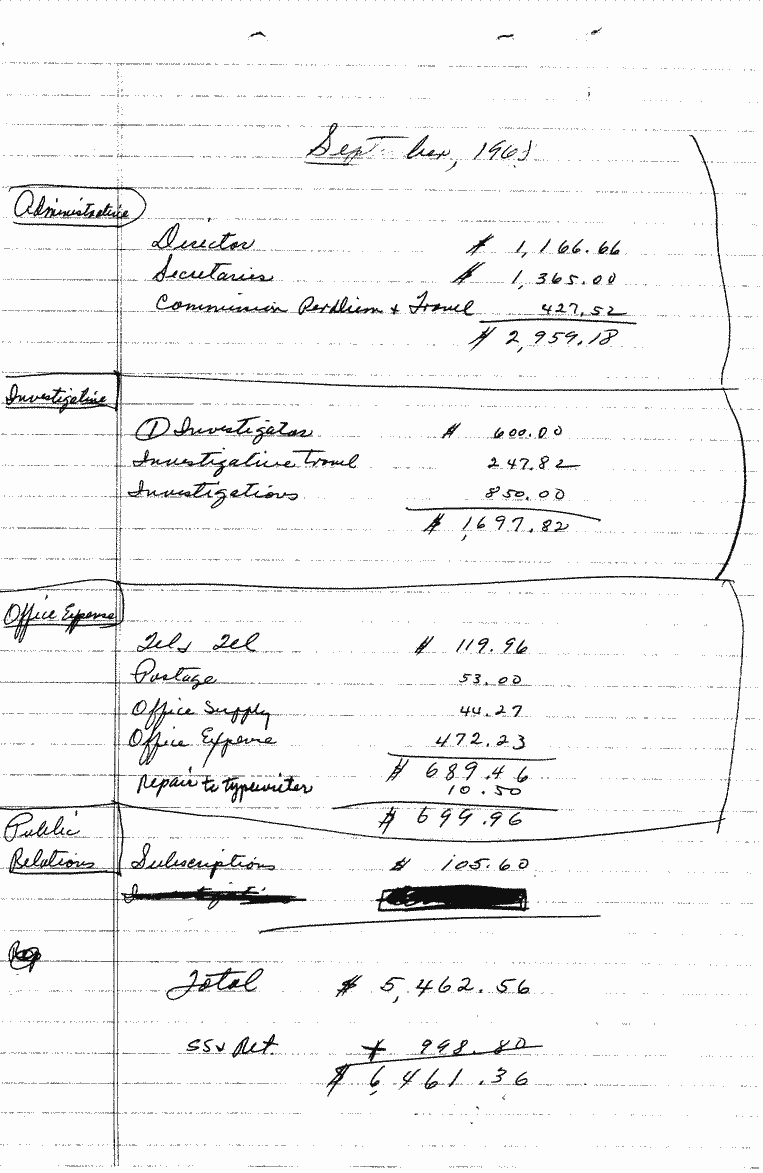 September, 1963
Administrative
Director $ 1,166.66
Secretaries $ 1,365.00
Commission PerDiem + Travel 427.52
$ 2,959.18
Investigative
① Investigator $ 600.00
Investigative Travel 247.82
Investigations 850.00
$ 1,697.82
Office Expense
Tel & Tel $ 119.96
Postage 53.00
Office Supply 44.27
Office Expense 472.23
$ 689.46
Repair to typewriter 10.50
$ 699.96
Public
Relations Subscriptions $ 105.60
Total $ 5,462.56
SS & Ret. + 998.80
$ 6,461.36